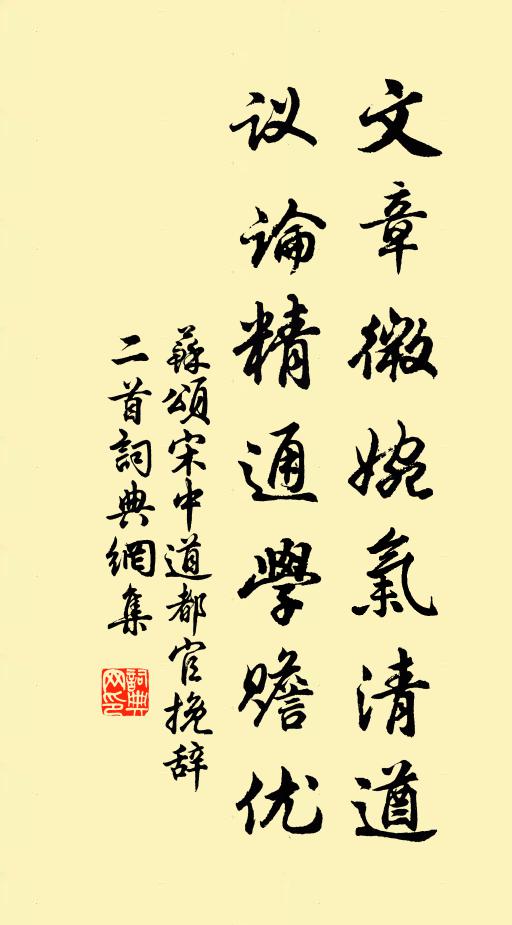 文章微婉氣清遒
议論精通學贍优
蘇頌宋中道都官挽辞
二首詞典網集
詞典网印